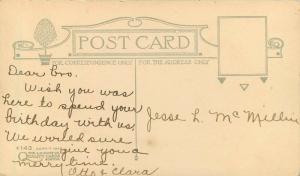 POST CARD
FOR CORRESPONDENCE ONLY
FOR THE ADDRESS ONLY
Dear Bro.
Wish you was
here to spend your
birthday with us.
We would sure
give you a
merry time.
Otto & Clara
Jesse L. McMillin